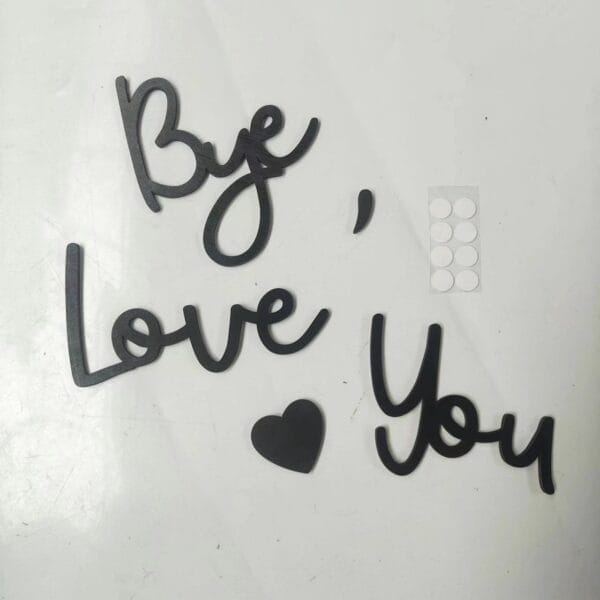 Bye,
Love You